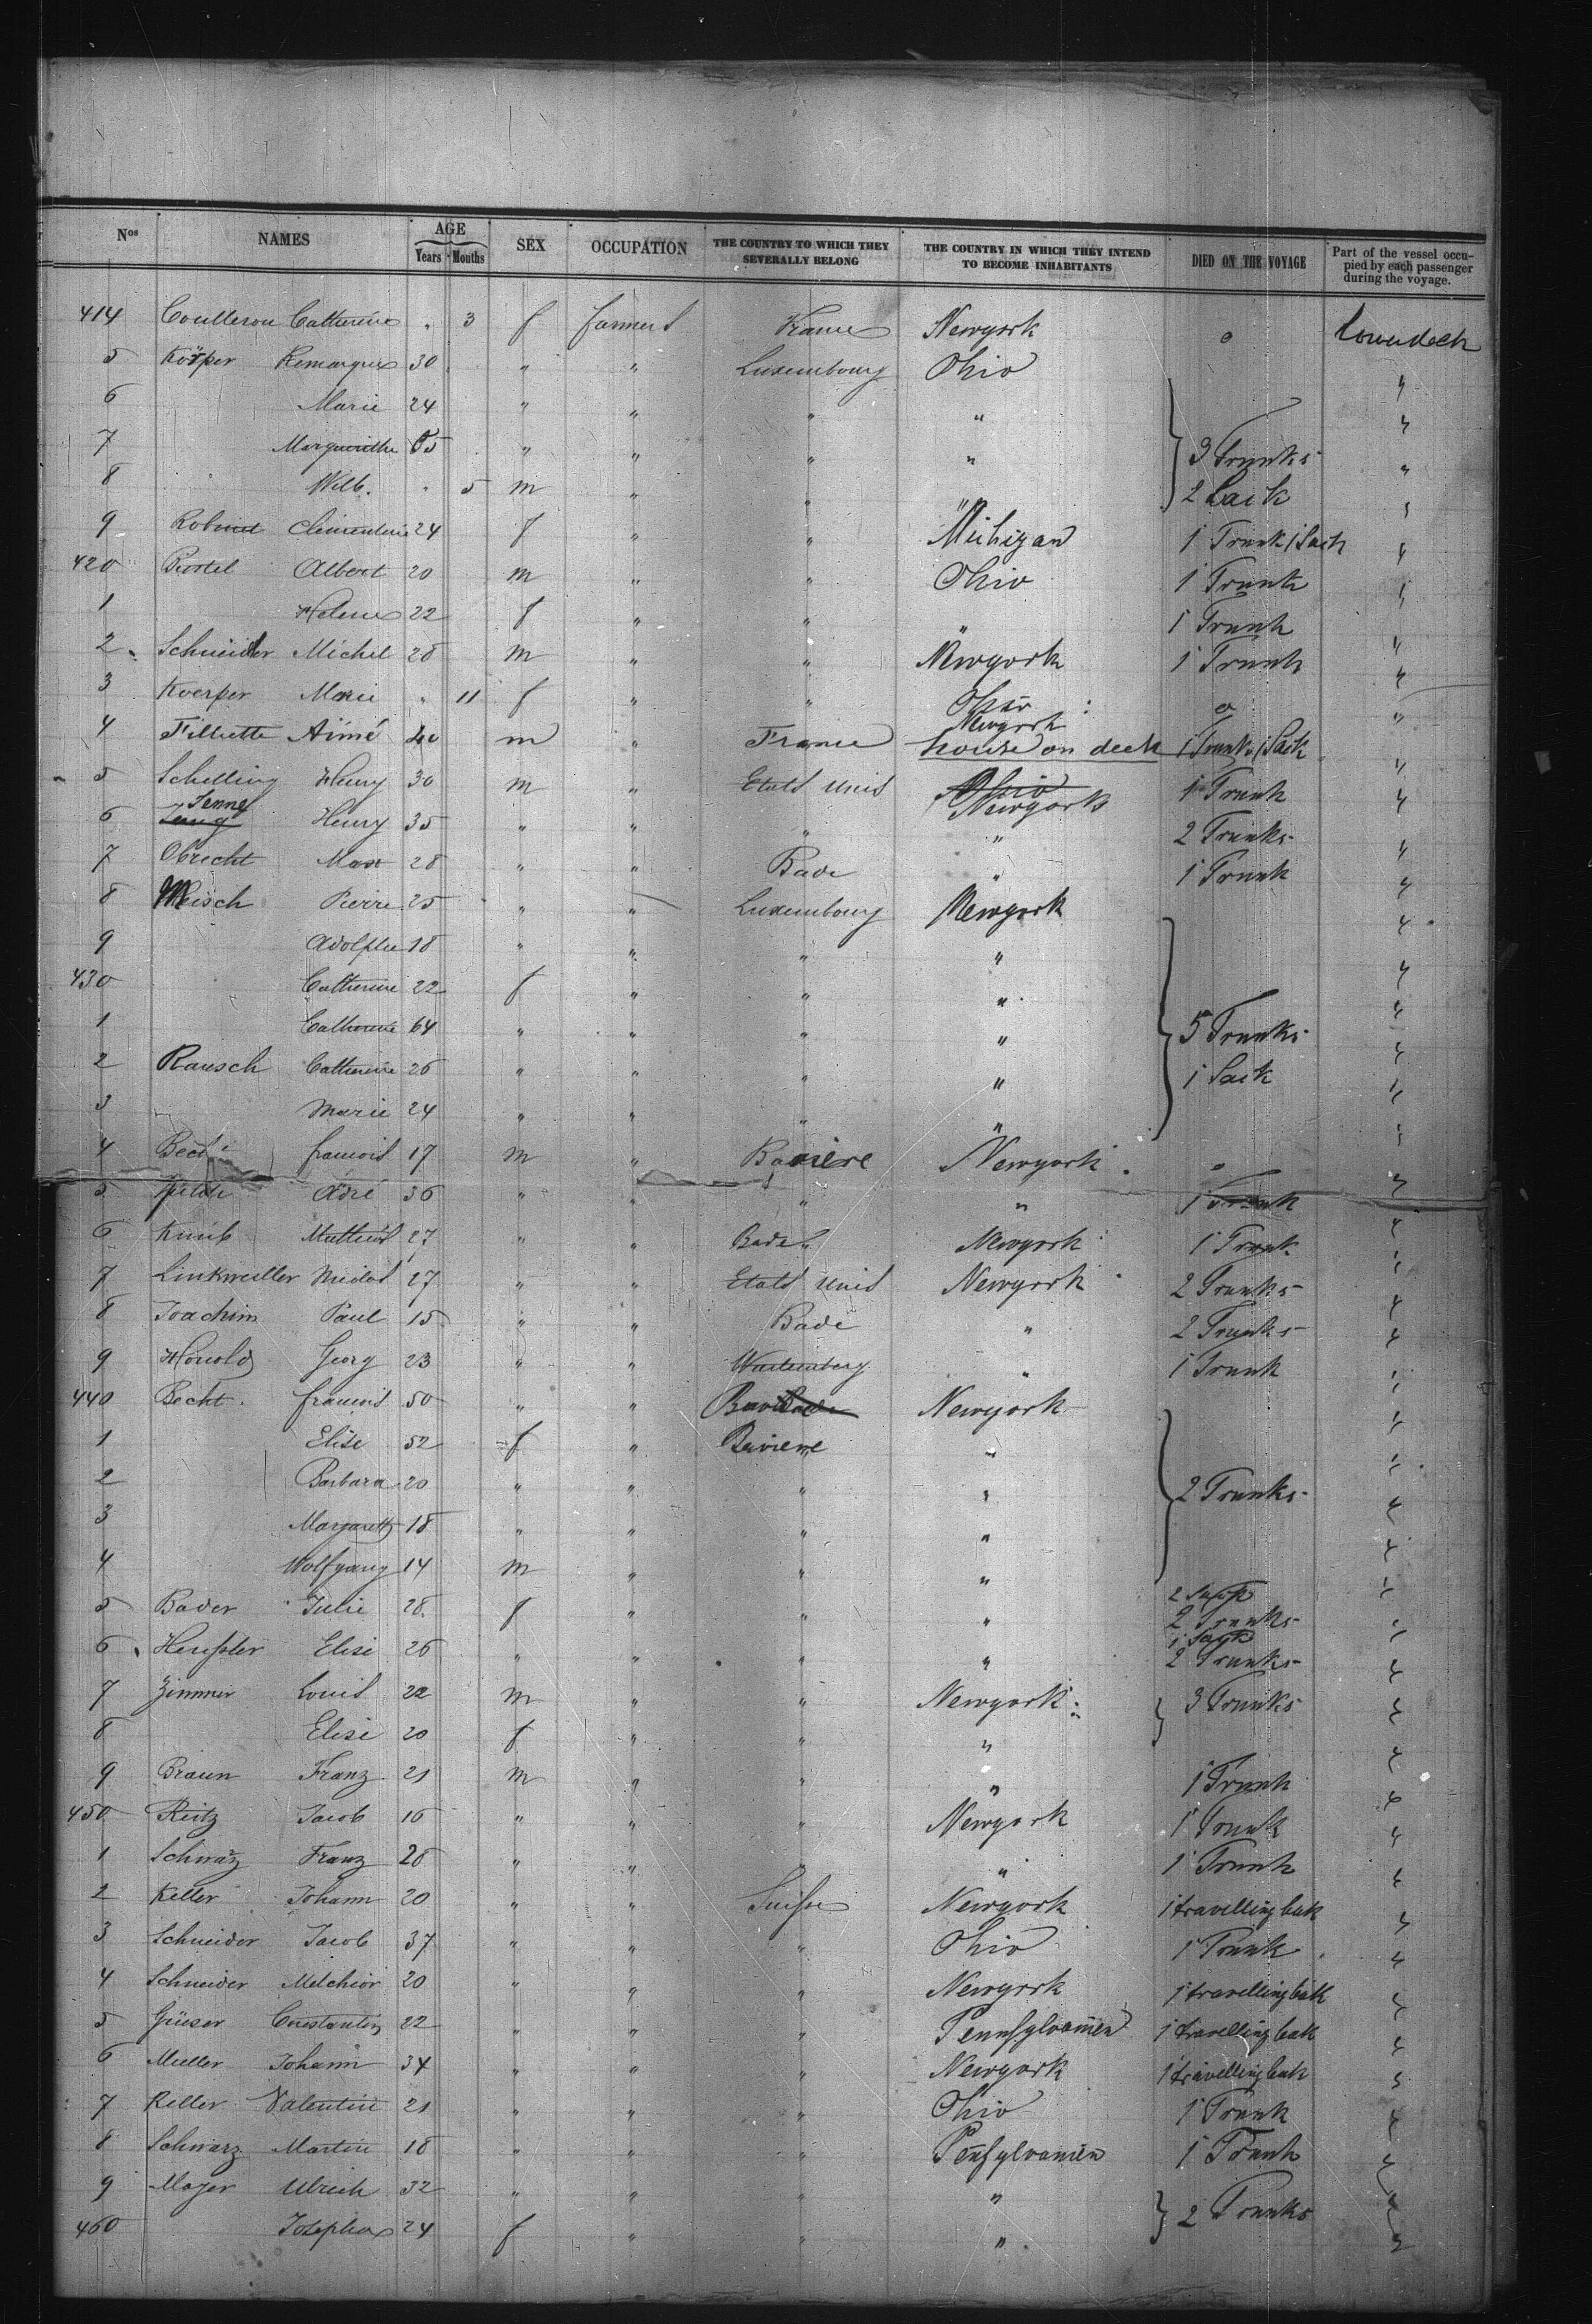 Nos NAMES AGE Years Months SEX OCCUPATION THE COUNTRY TO WHICH THEY SEVERALLY BELONG THE COUNTRY IN WHICH THEY INTEND TO BECOME INHABITANTS DIED ON THE VOYAGE Part of the vessel occupied by each passenger during the voyage.
414 Coulleron Catherine " 3 f farmers France Newyork o lowerdeck
5 Körper 30 " " Luxembourg Ohio "
6 Marie 24 " " " " "
7 Marguerithe 65 " " " " 3 Trunks "
8 Wilb. " 5 m " " " 2 Sack "
9 Clementine 24 f " " Michigan 1 Trunk 1 Sack "
420 Albert 20 m " " Ohio 1 Trunk "
1 Helene 22 f " " " 1 Trunk "
2 Schneider Michel 28 m " " Newyork 1 Trunk "
3 Koerper Marie " 11 f " " Ohio o "
4 Aimé 40 m " France Newyork house on deck 1 Trunk 1 Sack "
5 Schelling Henry 30 m " Etats Unis Ohio Newyork 1 Trunk "
6 Jenne Henry 35 " " " " 2 Trunks "
7 Obrecht Max 28 " " Bade " 1 Trunk "
8 Meisch Pierre 25 " " Luxembourg Newyork "
9 Adolphe 18 " " " " "
430 Catherine 22 f " " " "
1 Catherine 64 " " " " 5 Trunks "
2 Rausch Catherine 26 " " " " 1 Sack "
3 Marie 24 " " " " "
4 francois 17 m " Baviere Newyork o "
5 36 " " " " 1 Trunk "
6 27 " " Bade Newyork 1 Trunk "
7 Linkweiller 27 " " Etats Unis Newyork 2 Trunks "
8 Joachim Paul 15 " " Bade " 2 Trunks "
9 Honold Georg 23 " " Wurtemberg " 1 Trunk "
440 Becht francois 50 " " Newyork "
1 Elise 52 f " Baviere " "
2 Barbara 20 " " " " 2 Trunks "
3 Margareth 18 " " " " "
4 Wolfgang 14 m " " " "
5 Bader Julie 28 f " " " 2 Trunks "
6 Elise 26 " " " " 2 Trunks "
7 Zimmer Louis 22 m " " Newyork 3 Trunks "
8 Elise 20 f " " " "
9 Braun Franz 21 m " " " 1 Trunk "
450 Reitz Jacob 16 " " " Newyork 1 Trunk "
1 Schwarz Franz 28 " " " " 1 Trunk "
2 Keller Johann 20 " " Suisse Newyork 1 travelling bak "
3 Schneider Jacob 37 " " " Ohio 1 Trunk "
4 Schneider Melchior 20 " " " Newyork 1 travelling bak "
5 Constantin 22 " " " Pennsylvanien 1 travelling bak "
6 Muller Johann 34 " " " Newyork 1 travelling bak "
7 Keller Valentin 21 " " " Ohio 1 Trunk "
8 Schwarz Martin 18 " " " Pensylvanien 1 Trunk "
9 Mayer Ulrich 32 " " " " 2 Trunks "
460 Josepha 24 f " " " "